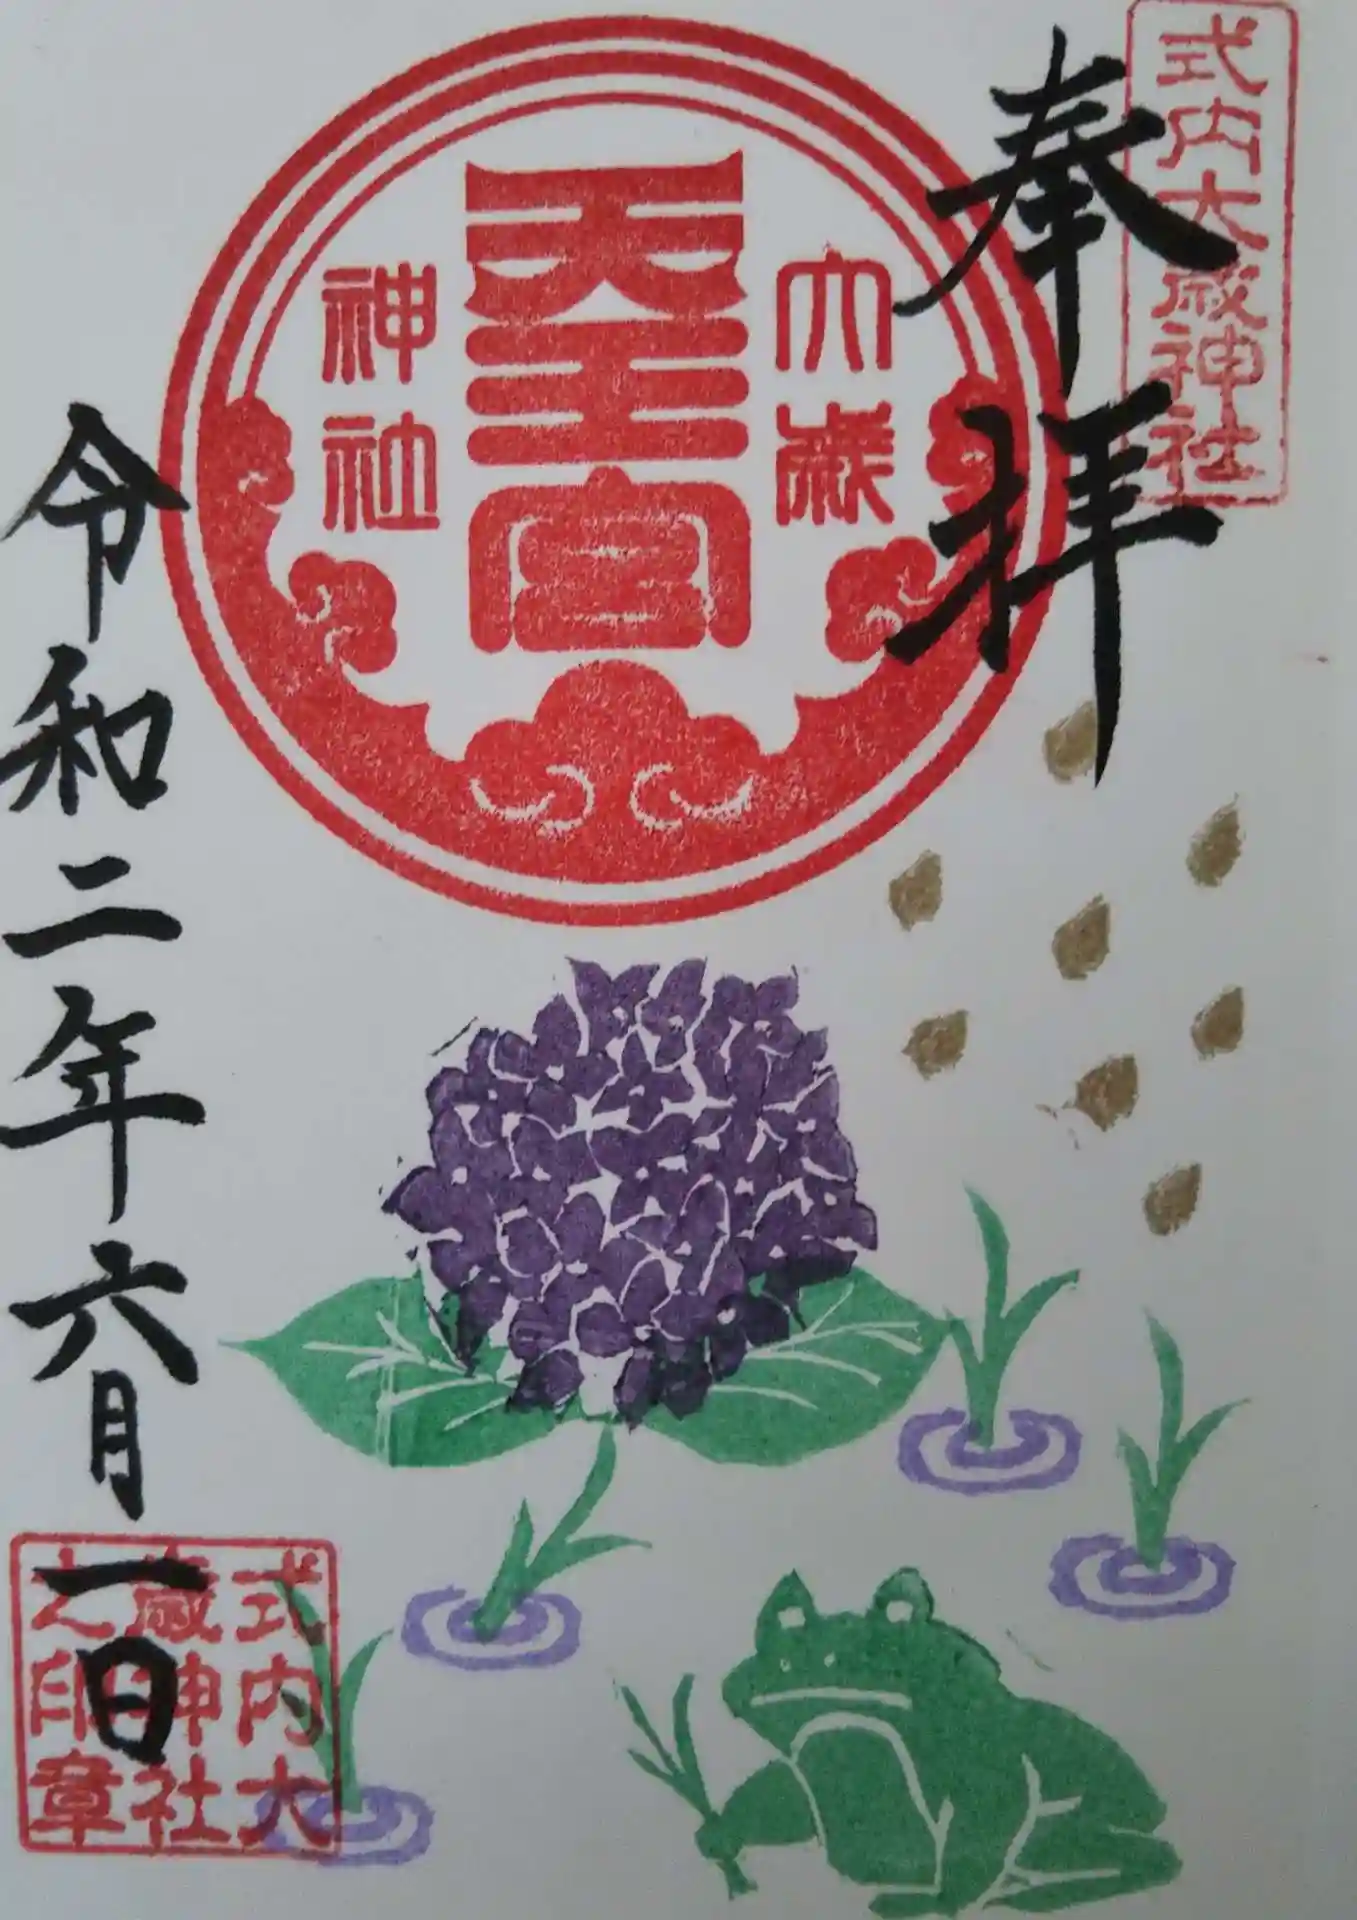 式内大歳神社
奉拝
大歳
天王宮
神社
令和二年六月一日
式内大
歳神社
之印章